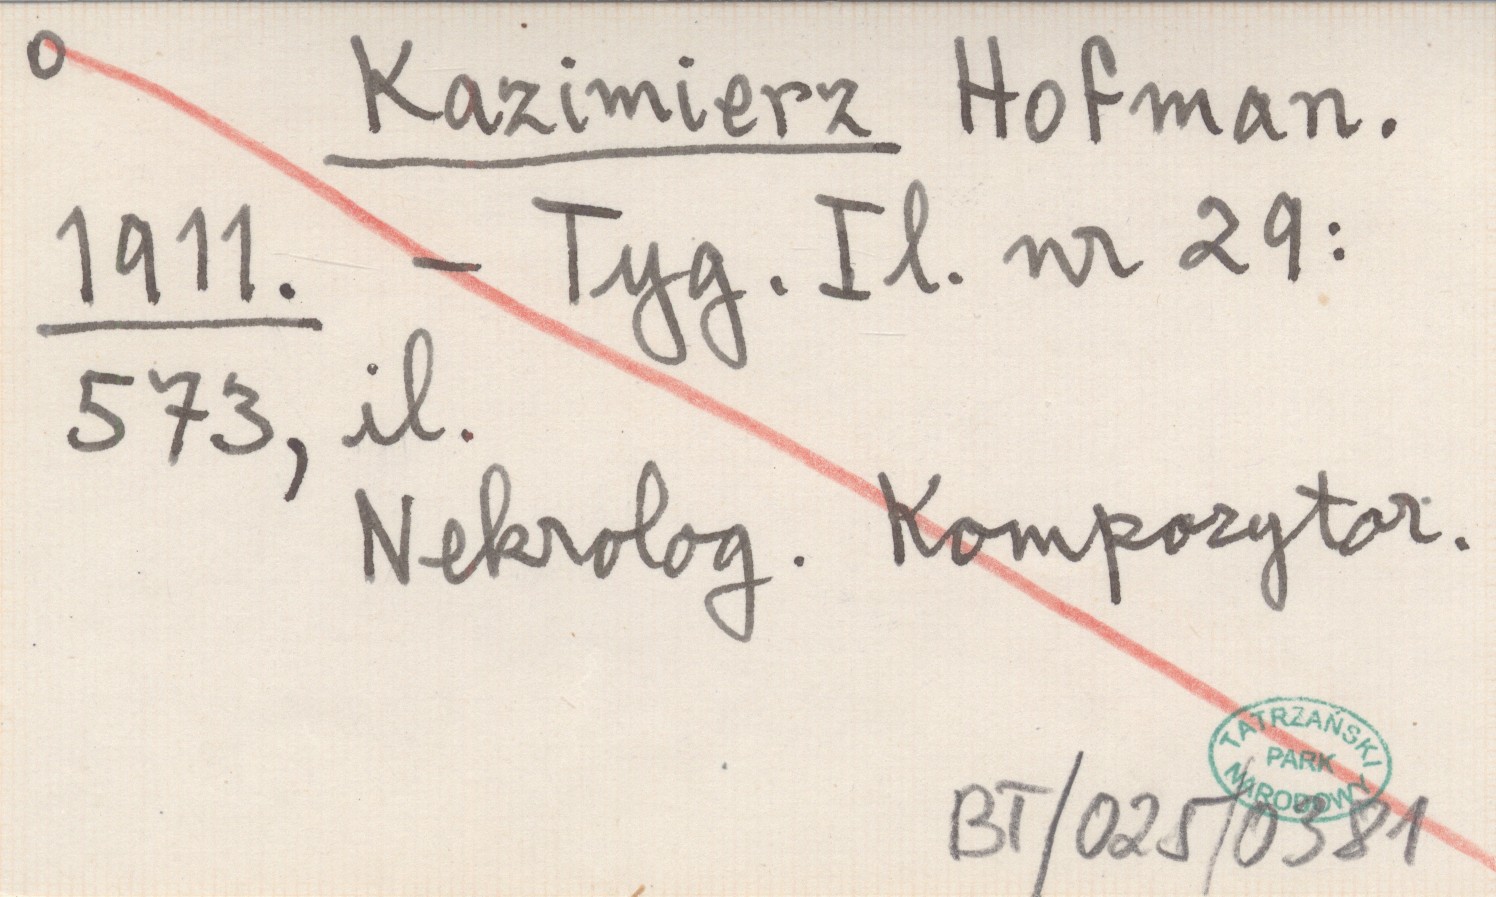 o Kazimierz Hofman.
1911. – Tyg. Il. nr 29:
573, il.
Nekrolog. Kompozytor.
TATRZAŃSKI
PARK
NARODOWY
BT/025/0381